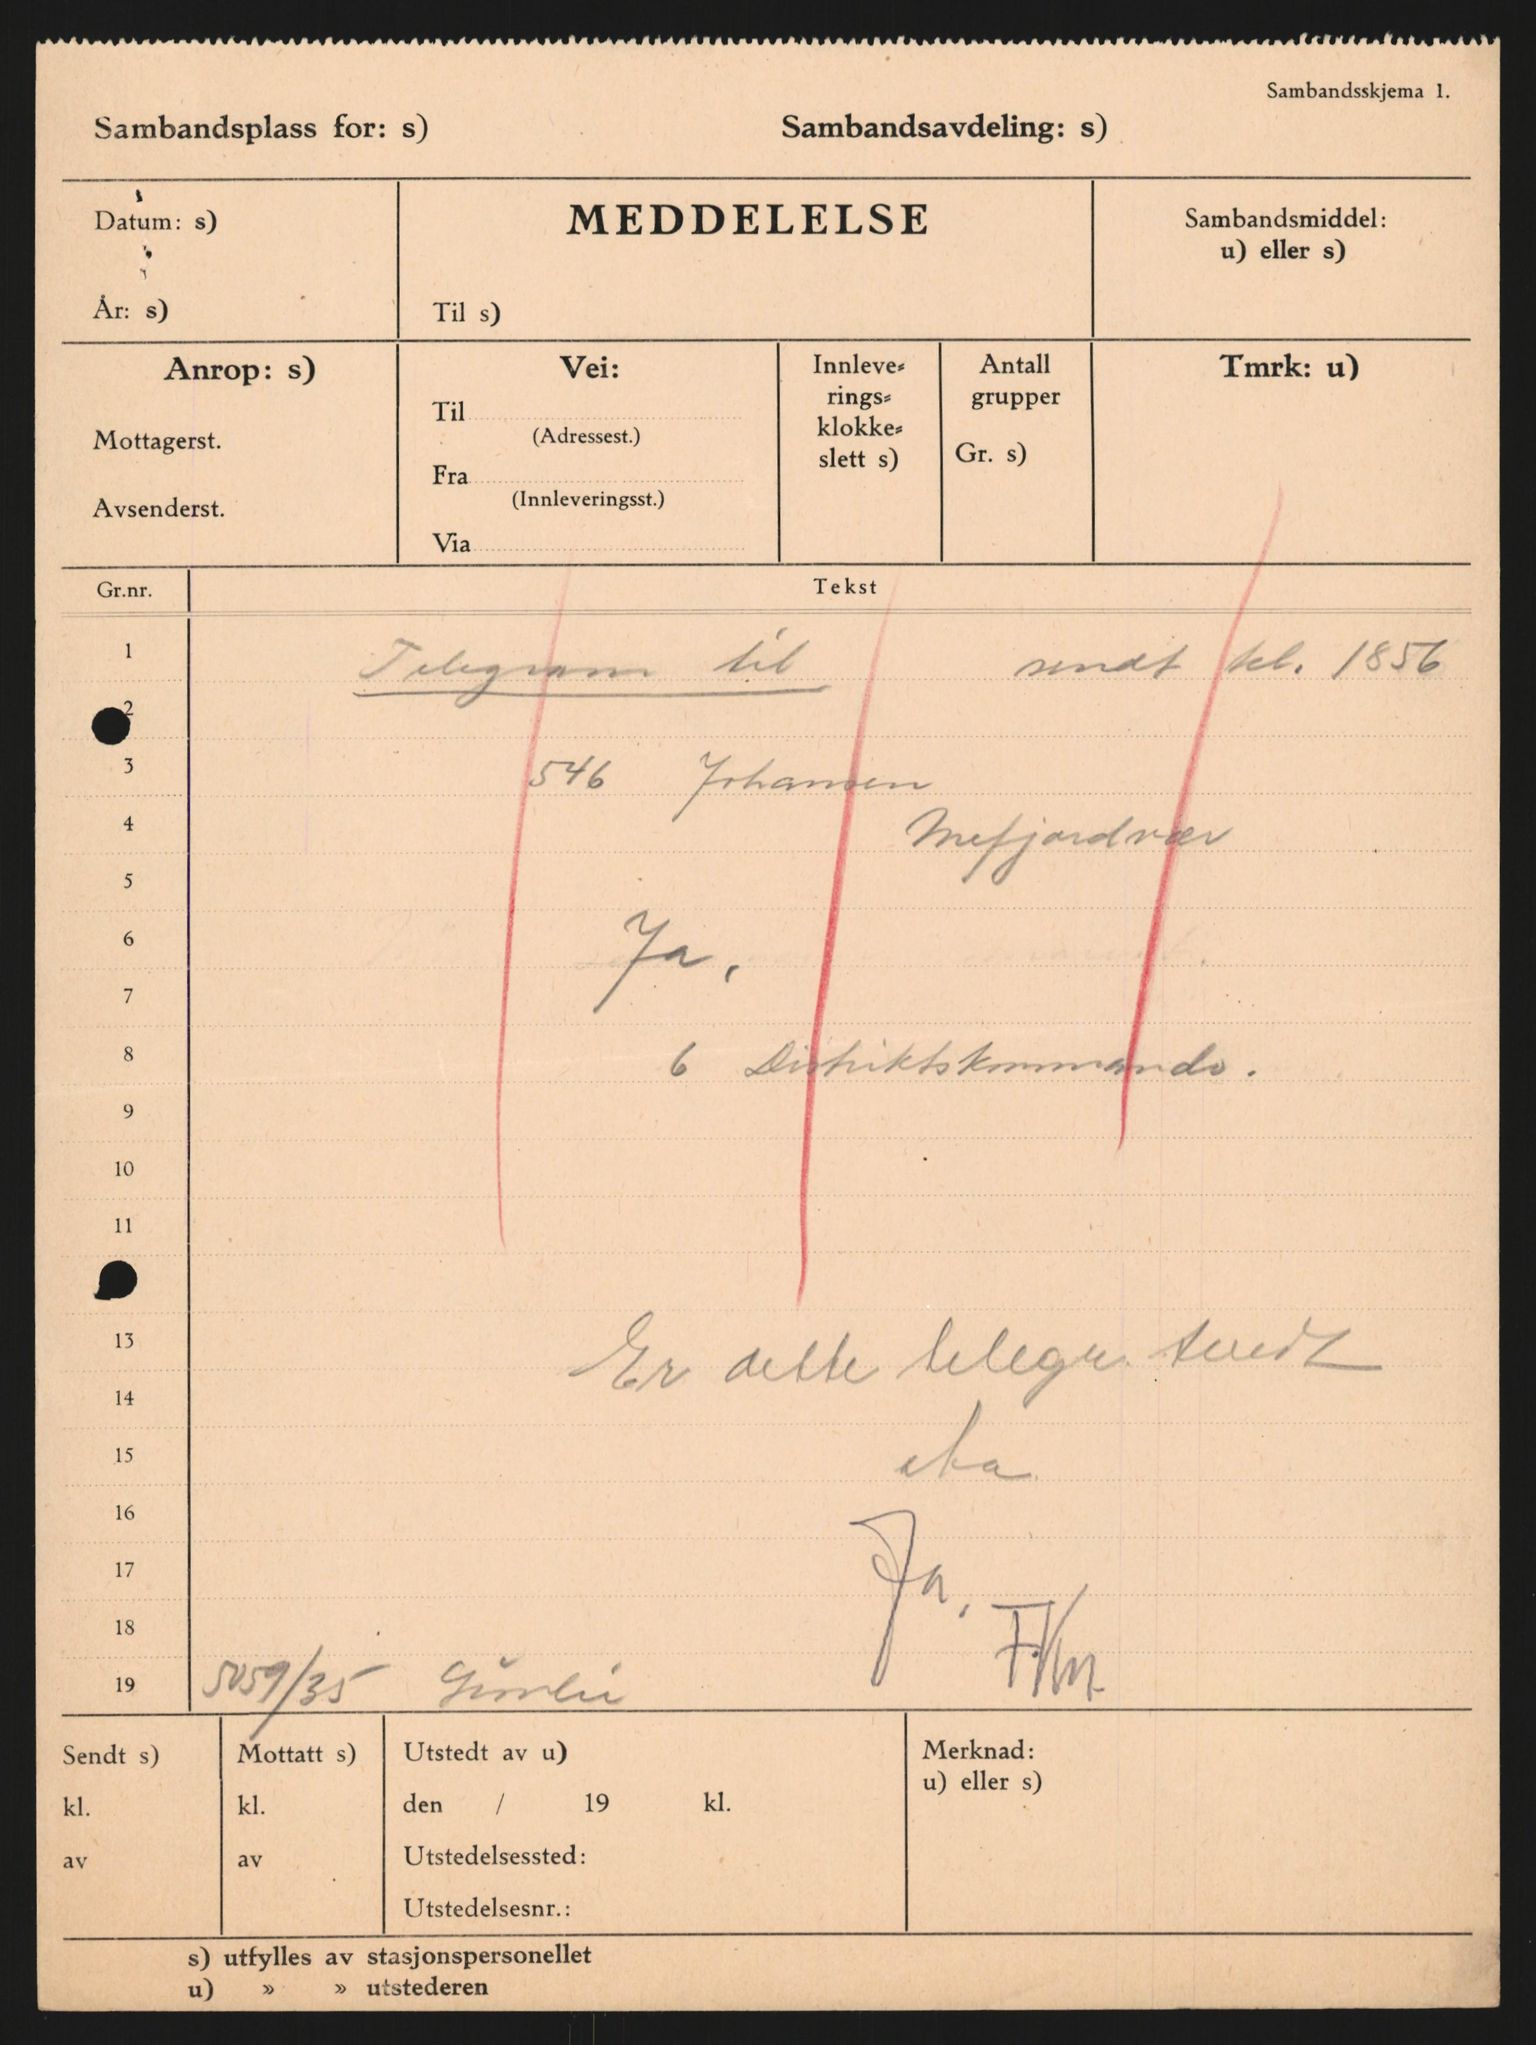 Sambandsskjema 1.
Sambandsplass for: s) Sambandsavdeling: s)
Datum: s)
År: s)
MEDDELELSE
Til s)
Sambandsmiddel:
u) eller s)
Anrop: s)
Mottagerst.
Avsenderst.
Vei:
Til
(Adressest.)
Fra
(Innleveringsst.)
Via
Innleve-
rings-
klokke-
slett s)
Antall
grupper
Gr. s)
Tmrk: u)
Gr.nr. Tekst
1 Telegram til sendt kl. 1856
2
3 546 Johansen
4 Mefjordvær
5
6 Ja,
7
8 6 Distriktskommando.
9
10
11
13 Er dette telegr. sendt
14
15
16
17 Ja,
18
19 5059/35
Sendt s)
kl.
av
Mottatt s)
kl.
av
Utstedt av u)
den / 19 kl.
Utstedelsessted:
Utstedelsesnr.:
Merknad:
u) eller s)
s) utfylles av stasjonspersonellet
u) » » utstederen